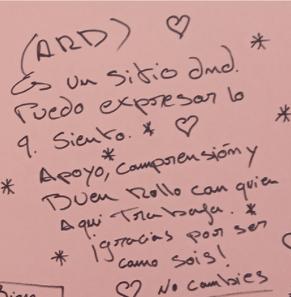 (ARD)
Es un sitio dnd.
Puedo expresar lo
q. Siento.
Apoyo, comprensión y
Buen Rollo con quien
Aqui Trabaja.
¡gracias por ser
como sois!
No cambies